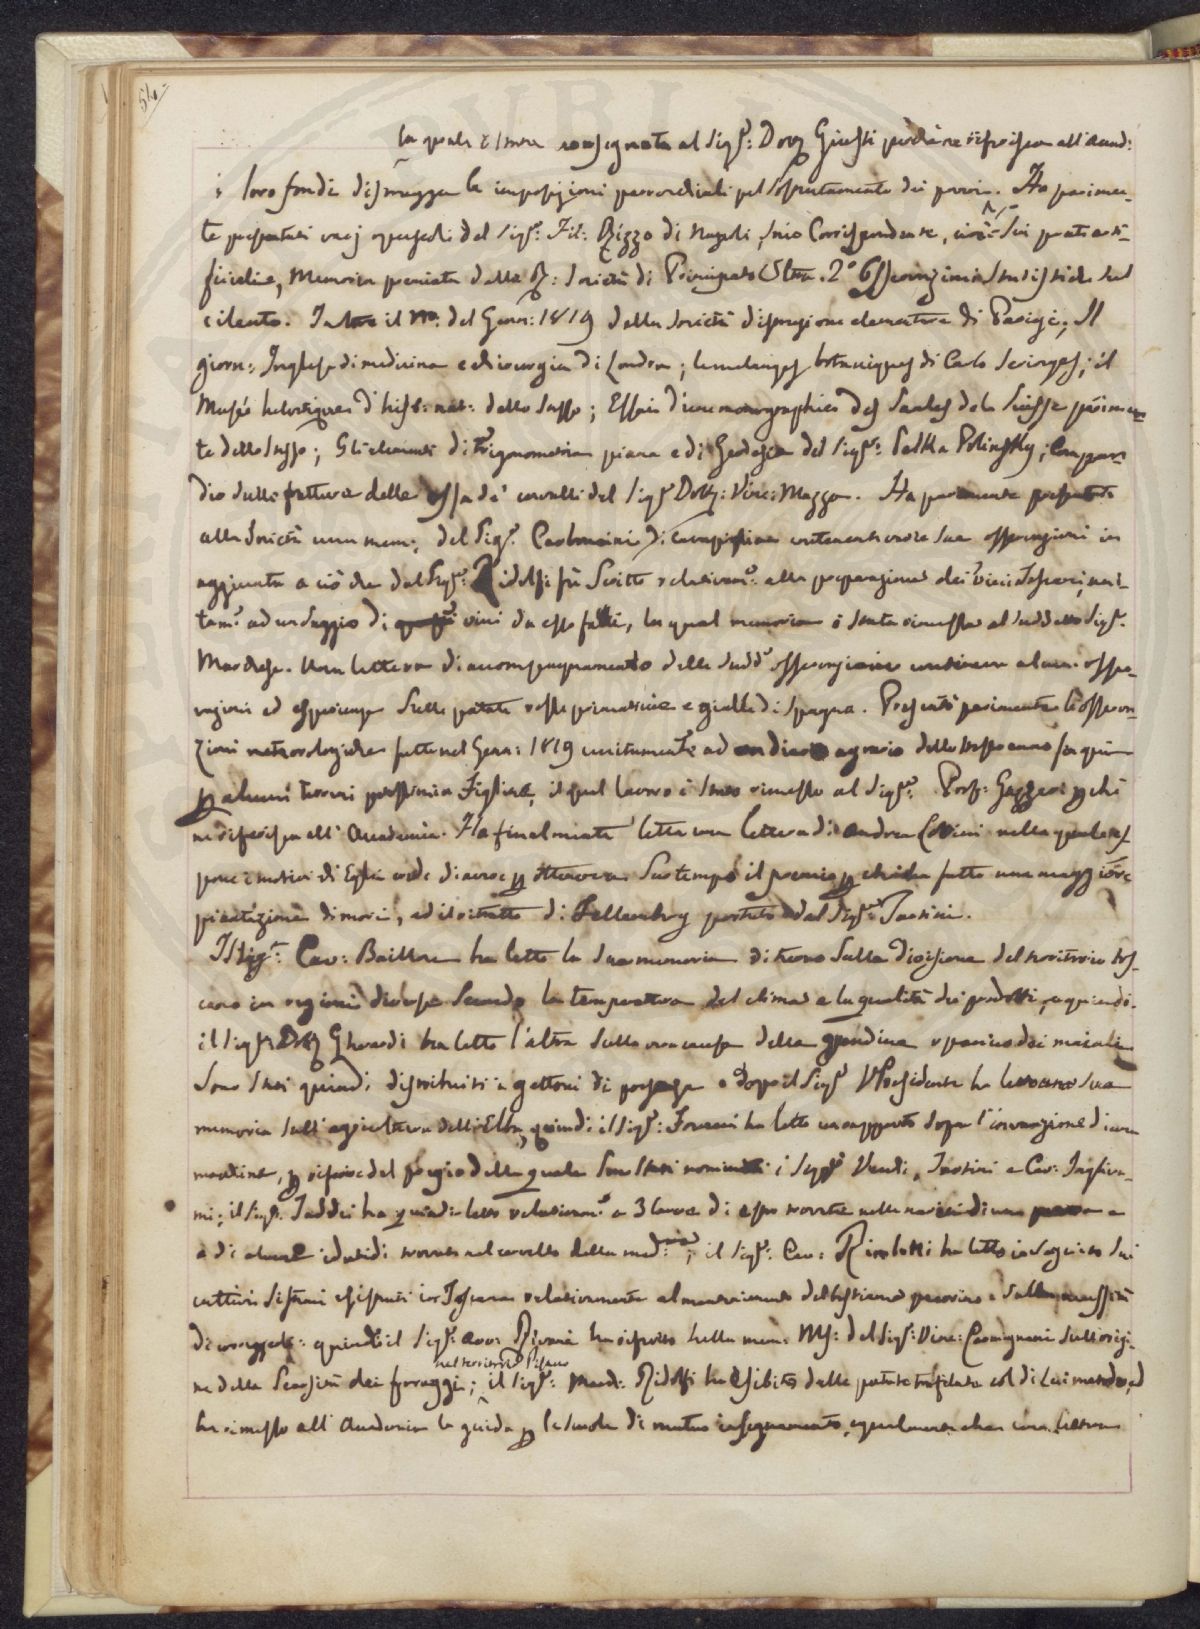 54.
la quale è stata consegnata al Sig.r Dott. Giusti perchè ne riferisca all'Accad:
i loro fondi di la imposizioni del dei poveri. Ha parimen-
te presentati varj opuscoli del Sig.r Fil: Rizzo di Napoli, suo Corrispondente, cioè 1.° Sui prati arti-
ficiali, Memoria premiata dalla R: Società di Principato Ultra. 2.° Osservazioni Statistiche sul
Cilento. Inoltre il N.° del Genn: 1819 della Società d'istruzione elementare di Parigi; Il
giorn: Inglese di medicina e chirurgia di Londra; le melanges botaniques di Carlo Seringes; il
Musée helvetique d'hist: nat: dello stesso; Essais d'une monographie des Saules de la Suisse parimen-
te dello stesso; Gli elementi di Trigonometria piana e di Geodesia del Sig.r Polinsky; Compen-
dio sulle fratture delle ossa de' cavalli del Sig.r Dott: Vinc: Mazza. Ha parimente presentato
alla Società una mem: del Sig.r di contenente varie sue osservazioni in
aggiunta a ciò che dal Sig.r Ridolfi fu scritto relativam.e alla preparazione dei vini Toscani, uni-
tam.e ad un saggio di vini da esso fatti, la qual memoria è stata rimessa al suddetto Sig.r
Marchese. Una lettera di accompagnamento delle sudd.e osservazioni contiene alcune osser-
vazioni ed esperienze sulle patate rosse primaticcie e gialle di Spagna. Presentò parimente le osserva-
zioni meteorologiche fatte nel Genn: 1819 unitamente ad un diario agrario dello stesso anno
p alcuni terreni presso Figline, il qual lavoro è stato rimesso al Sig.r Prof: Gazzeri p chè
ne riferisca all'Accademia. Ha finalmente letta una lettera di Andrea nella quale es-
pone i motivi di che crede di avere p ottenere a suo tempo il premio p chi ha fatto una maggiore
piantazione di mori, ed il ritratto di Fellenberg portato dal Sig.r Tartini.
Il Sig.r Cav: Baillou ha letto la sua memoria di turno sulla divisione del territorio tos-
cano in regioni diverse secondo la temperatura del clima e la qualità dei prodotti, e quindi
il Sig.r Dott Gherardi ha letto l'altra sulla vera causa della grandine o panico dei maiali
Sono stati quindi distribuiti i gettoni di presenza e dopo il Sig.r V.Presidente ha letto una sua
memoria sull'agricoltura dell'Elba, quindi il Sig.r ha letto un rapporto sopra l'invenzione d'una
macchina, p riferire del pregio della quale sono stati nominati i Sigg.ri Tartini e Cav: Inghira-
mi; il Sig.r Taddei ha quindi letto relativam.e a 3 larve di estro trovate nelle narici di una pecora e
e di alcune idatidi trovate nel cervello della med.ma; il Sig.r Cav: Ricolotti ha letto in seguito sui
cattivi sistemi esistenti in Toscana relativamente al mantenimento del bestiame pecorino e sulla necessità
di correggerli: quindi il Sig.r Avv: ha riferito sulla mem: MS: del Sig.r Vinc: Carmignani sull'origi-
ne della scarsità dei foraggi nel territorio Pisano; il Sig.r March: Ridolfi ha esibito delle patate trifolate col di lui metodo, ed
ha rimesso all'Accademia la guida p le scuole di mutuo insegnamento, egualmente che una lettera